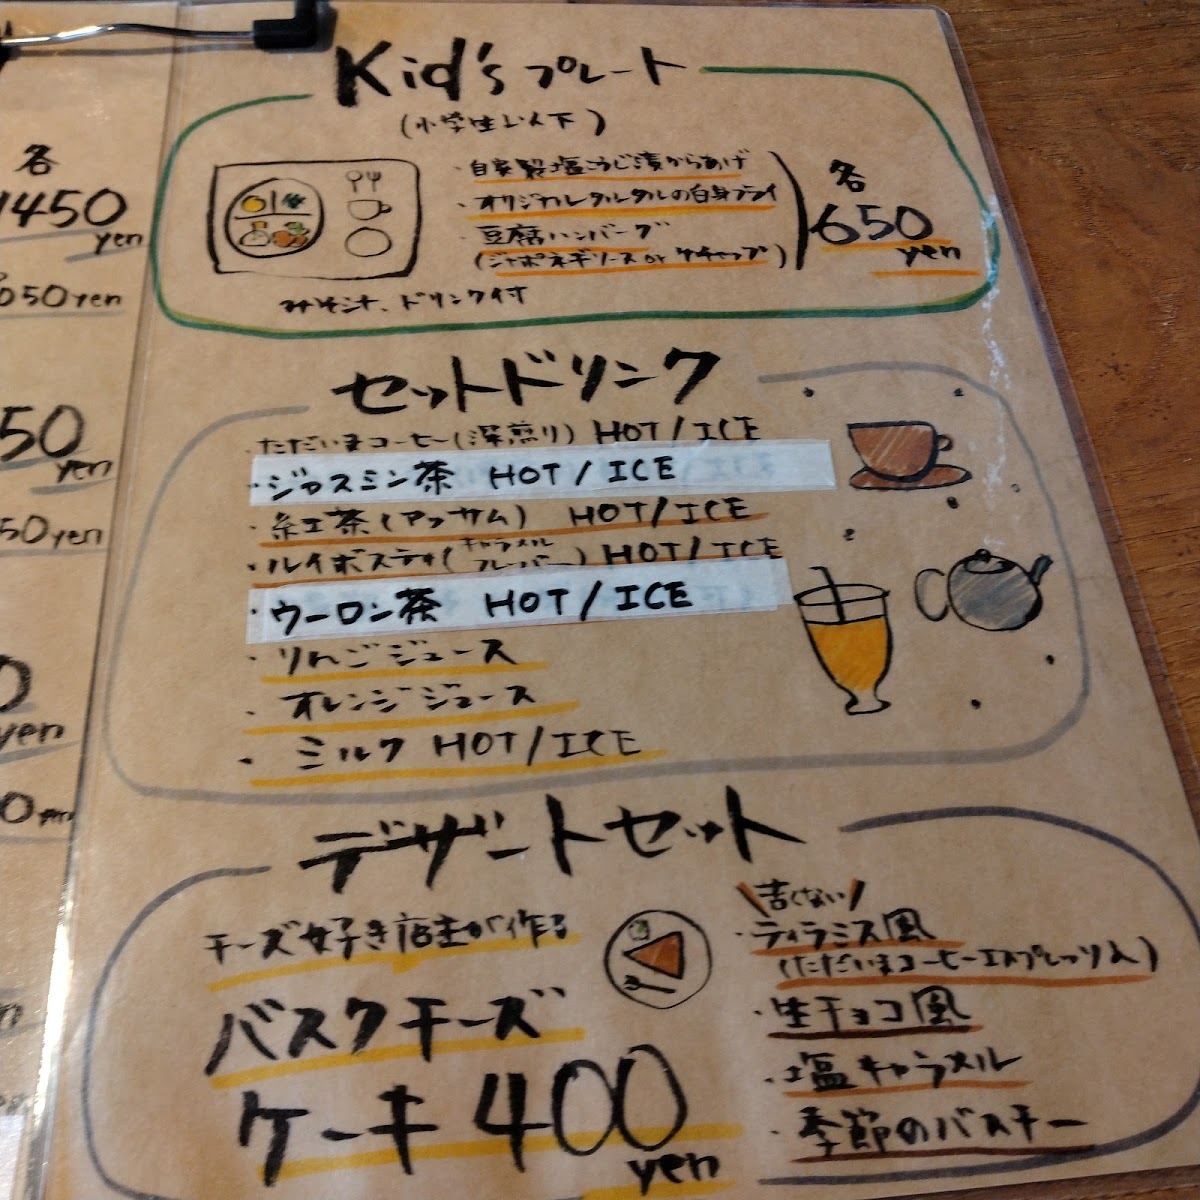 各
1450
yen
050yen
50
yen
50yen
yen
Kid'sプレート
(小学生以下)
・自家製塩こうじ漬からあげ
・オリジナルタルタルの白身フライ
・豆腐ハンバーグ
(ジャポネギソース or ケチャップ)
各
650
yen
みそ汁、ドリンク付
セットドリンク
・ただいまコーヒー(深煎り) HOT/ICE
・ジャスミン茶 HOT/ICE
・紅茶(アッサム) HOT/ICE
・ルイボスティ(キャラメルフレーバー) HOT/ICE
・ウーロン茶 HOT/ICE
・りんごジュース
・オレンジジュース
・ミルク HOT/ICE
デザートセット
チーズ好き店主が作る
バスクチーズ
ケーキ400
yen
\苦くない/
・ティラミス風
(ただいまコーヒーエスプレッソ入)
・生チョコ風
・塩キャラメル
・季節のバスチー